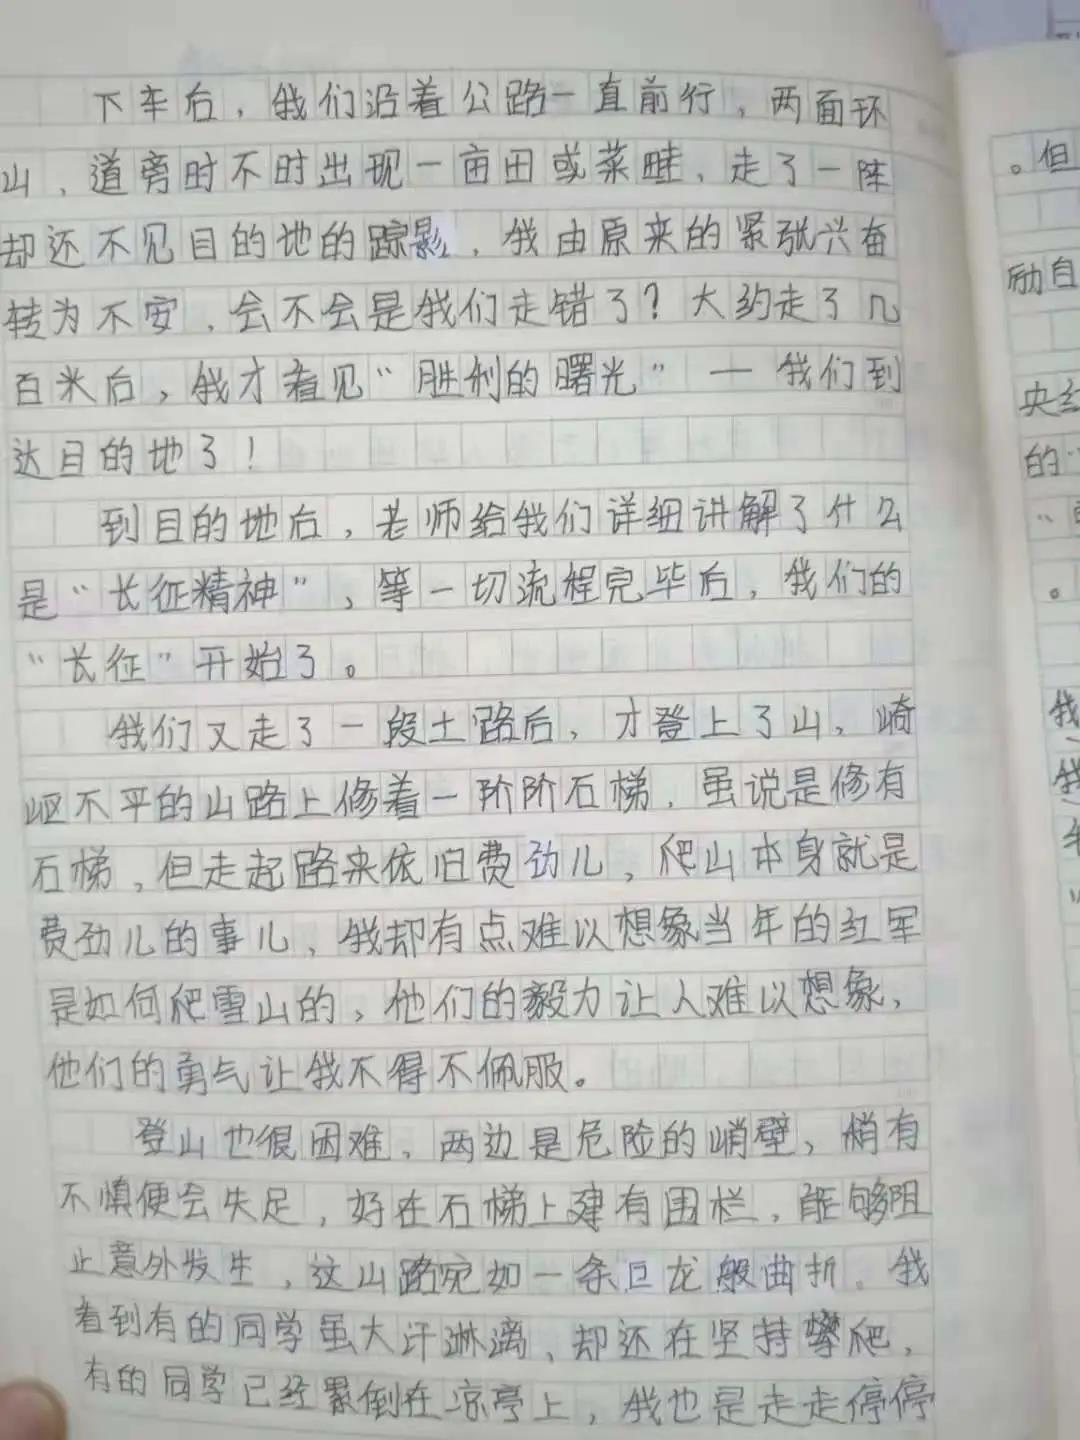 下车后，我们沿着公路一直前行，两面环
山，道旁时不时出现一亩田或菜畦，走了一阵
却还不见目的地的踪影，我由原来的紧张兴奋
转为不安，会不会是我们走错了？大约走了几
百米后，我才看见“胜利的曙光”—我们到
达目的地了！
到目的地后，老师给我们详细讲解了什么
是“长征精神”，等一切流程完毕后，我们的
“长征”开始了。
我们又走了一段土路后，才登上了山，崎
岖不平的山路上修着一阶阶石梯，虽说是修有
石梯，但走起路来依旧费劲儿，爬山本身就是
费劲儿的事儿，我却有点难以想象当年的红军
是如何爬雪山的，他们的毅力让人难以想象，
他们的勇气让我不得不佩服。
登山也很困难，两边是危险的峭壁，稍有
不慎便会失足，好在石梯上建有围栏，能够阻
止意外发生，这山路宛如一条巨龙般曲折。我
看到有的同学虽大汗淋漓，却还在坚持攀爬，
有的同学已经累倒在凉亭上，我也是走走停停
。但
励自
央红
的“
。
我
我